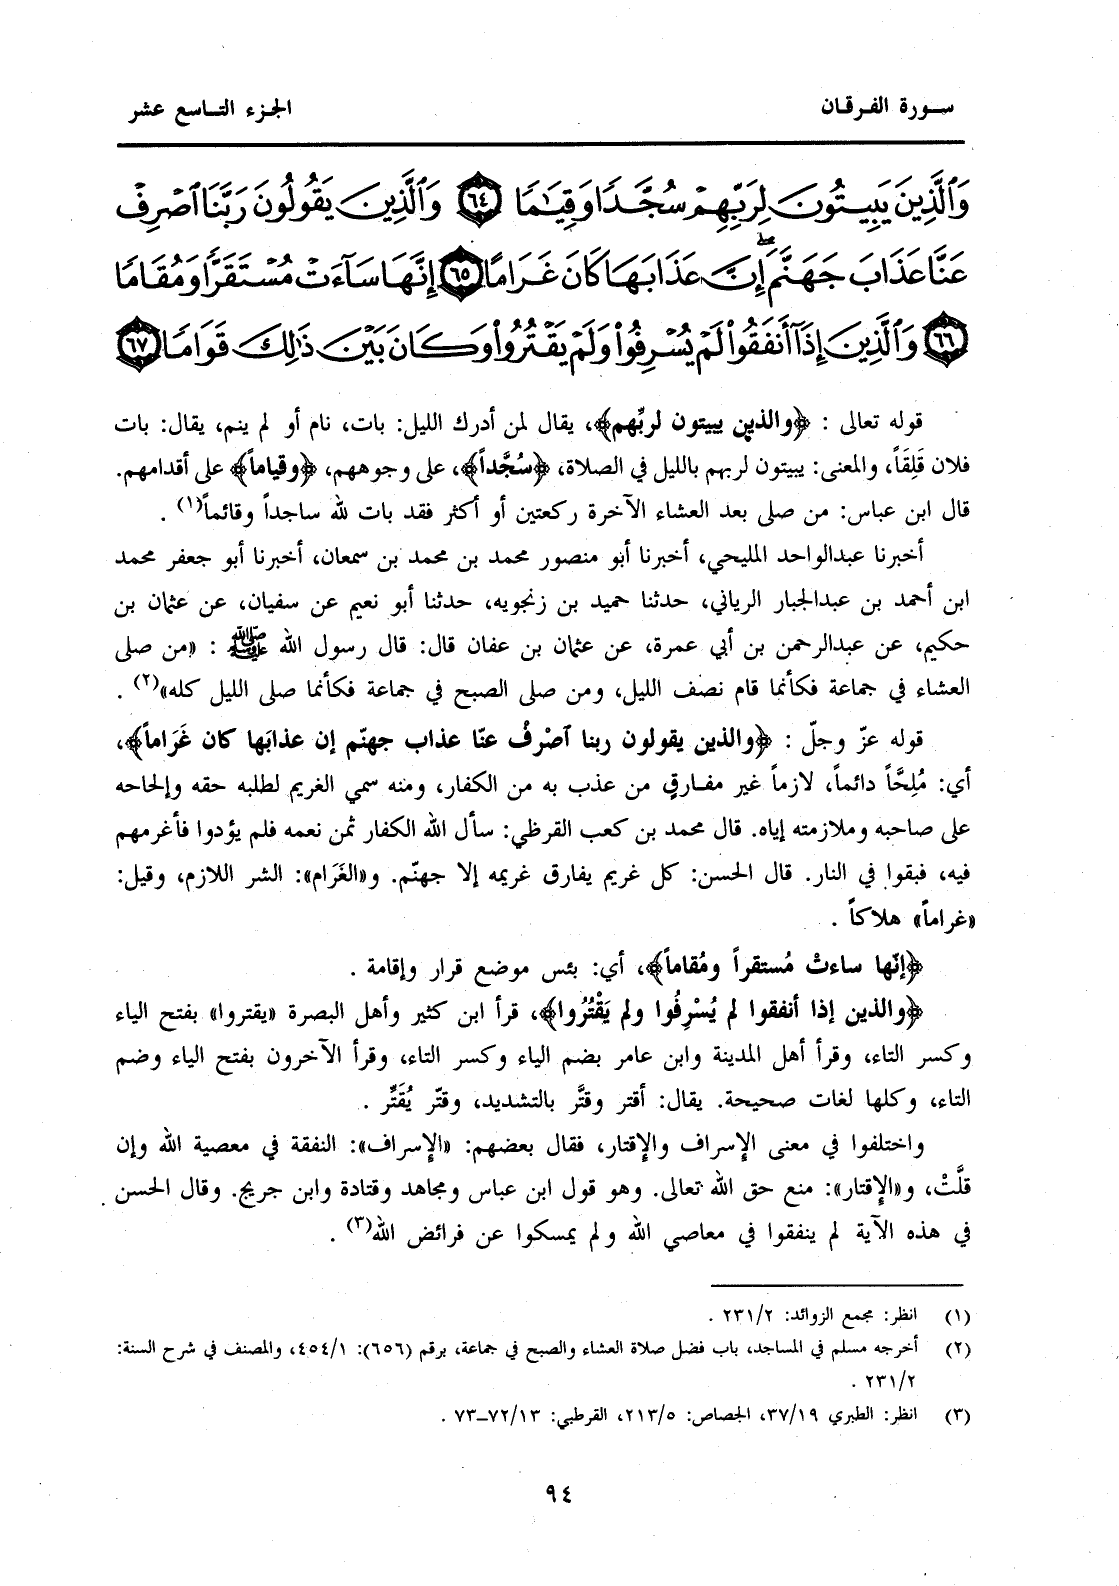 سورة الفرقان
الجزء التاسع عشر
وَٱلَّذِينَ يَبِيتُونَ لِرَبِّهِمْ سُجَّدًا وَقِيَٰمًا ﴿٦٤﴾ وَٱلَّذِينَ يَقُولُونَ رَبَّنَا ٱصْرِفْ
عَنَّا عَذَابَ جَهَنَّمَ ۖ إِنَّ عَذَابَهَا كَانَ غَرَامًا ﴿٦٥﴾ إِنَّهَا سَآءَتْ مُسْتَقَرًّا وَمُقَامًا
﴿٦٦﴾ وَٱلَّذِينَ إِذَآ أَنفَقُوا۟ لَمْ يُسْرِفُوا۟ وَلَمْ يَقْتُرُوا۟ وَكَانَ بَيْنَ ذَٰلِكَ قَوَامًا ﴿٦٧﴾
قوله تعالى : ﴿والذين يبيتون لربِّهم﴾، يقال لمن أدرك الليل: بات، نام أو لم ينم، يقال: بات
فلان قَلِقَاً، والمعنى: يبيتون لربهم بالليل في الصلاة، ﴿سُجَّداً﴾، على وجوههم، ﴿وقياماً﴾ على أقدامهم.
قال ابن عباس: من صلى بعد العشاء الآخرة ركعتين أو أكثر فقد بات لله ساجداً وقائماً(١) .
أخبرنا عبدالواحد المليحي، أخبرنا أبو منصور محمد بن محمد بن سمعان، أخبرنا أبو جعفر محمد
ابن أحمد بن عبدالجبار الرياني، حدثنا حميد بن زنجويه، حدثنا أبو نعيم عن سفيان، عن عثمان بن
حكيم، عن عبدالرحمن بن أبي عمرة، عن عثمان بن عفان قال: قال رسول الله ﷺ : «من صلى
العشاء في جماعة فكأنما قام نصف الليل، ومن صلى الصبح في جماعة فكأنما صلى الليل كله»(٢) .
قوله عزّ وجلّ : ﴿والذين يقولون ربنا ٱصْرِفْ عنّا عذاب جهنّم إن عذابَها كان غَرَاماً﴾،
أي: مُلِحَّاً دائماً، لازماً غير مفارقٍ من عذب به من الكفار، ومنه سمي الغريم لطلبه حقه وإلحاحه
على صاحبه وملازمته إياه. قال محمد بن كعب القرظي: سأل الله الكفار ثمن نعمه فلم يؤدوا فأغرمهم
فيه، فبقوا في النار. قال الحسن: كل غريم يفارق غريمه إلا جهنّم. و«الغَرَام»: الشر اللازم، وقيل:
«غراماً» هلاكاً .
﴿إنّها ساءتْ مُستقراً ومُقاماً﴾، أي: بئس موضع قرار وإقامة .
﴿والذين إذا أنفقوا لم يُسْرِفُوا ولم يَقْتُرُوا﴾، قرأ ابن كثير وأهل البصرة «يقتروا» بفتح الياء
وكسر التاء، وقرأ أهل المدينة وابن عامر بضم الياء وكسر التاء، وقرأ الآخرون بفتح الياء وضم
التاء، وكلها لغات صحيحة. يقال: أقتر وقتَّر بالتشديد، وقتّر يُقَتِّر .
واختلفوا في معنى الإسراف والإقتار، فقال بعضهم: «الإسراف»: النفقة في معصية الله وإن
قلَّتْ، و«الإقتار»: منع حق الله تعالى. وهو قول ابن عباس ومجاهد وقتادة وابن جريج. وقال الحسن
في هذه الآية لم ينفقوا في معاصي الله ولم يمسكوا عن فرائض الله(٣) .
(١) انظر: مجمع الزوائد: ٢٣١/٢ .
(٢) أخرجه مسلم في المساجد، باب فضل صلاة العشاء والصبح في جماعة، برقم (٦٥٦): ٤٥٤/١، والمصنف في شرح السنة:
٢٣١/٢ .
(٣) انظر: الطبري ٣٧/١٩، الجصاص: ٢١٣/٥، القرطبي: ٧٢/١٣–٧٣ .
٩٤